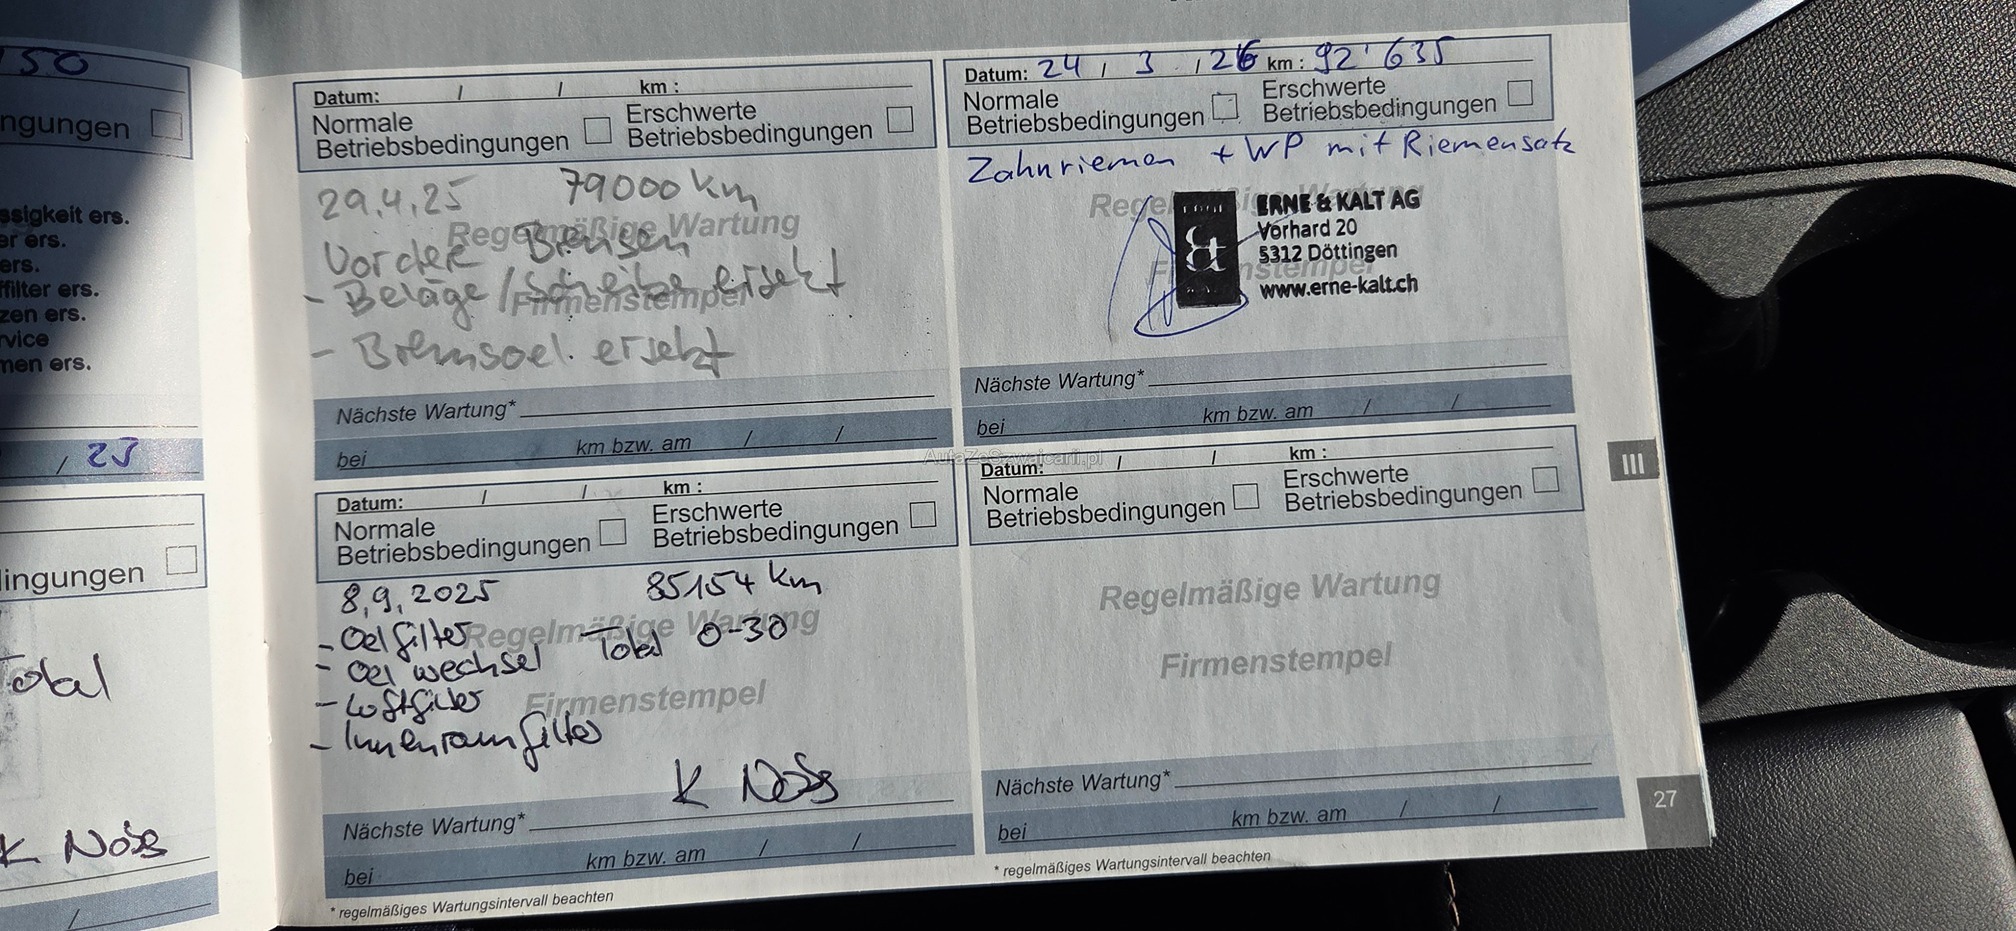 50
ngungen
ssigkeit ers.
er ers.
ers.
ffilter ers.
zen ers.
rvice
men ers.
/ 25
lingungen
Total
K Nöss
/
Datum: / / km :
Normale Betriebsbedingungen
Erschwerte Betriebsbedingungen
29.4.25 79000 km
Regelmäßige Wartung
Vordere Bremsen
- Beläge / Scheibe ersetzt
Firmenstempel
- Bremsoel. ersetzt
Nächste Wartung*
bei km bzw. am / /
Datum: / / km :
Normale Betriebsbedingungen
Erschwerte Betriebsbedingungen
8,9,2025 85154 km
Regelmäßige Wartung
- Oelfilter
- Oel wechsel Total 0-30
- Luftfilter
Firmenstempel
- Innenraumfilter
K Nöss
Nächste Wartung*
bei km bzw. am / /
* regelmäßiges Wartungsintervall beachten
Datum: 24 / 3 / 26 km : 92'635
Normale Betriebsbedingungen
Erschwerte Betriebsbedingungen
Zahnriemen + WP mit Riemensatz
Regelmäßige Wartung
ERNE & KALT AG
Vorhard 20
5312 Döttingen
Firmenstempel
www.erne-kalt.ch
Nächste Wartung*
bei km bzw. am / /
AutaZeSzwajcarii.pl
Datum: / / km :
Normale Betriebsbedingungen
Erschwerte Betriebsbedingungen
Regelmäßige Wartung
Firmenstempel
Nächste Wartung*
bei km bzw. am / /
* regelmäßiges Wartungsintervall beachten
III
27